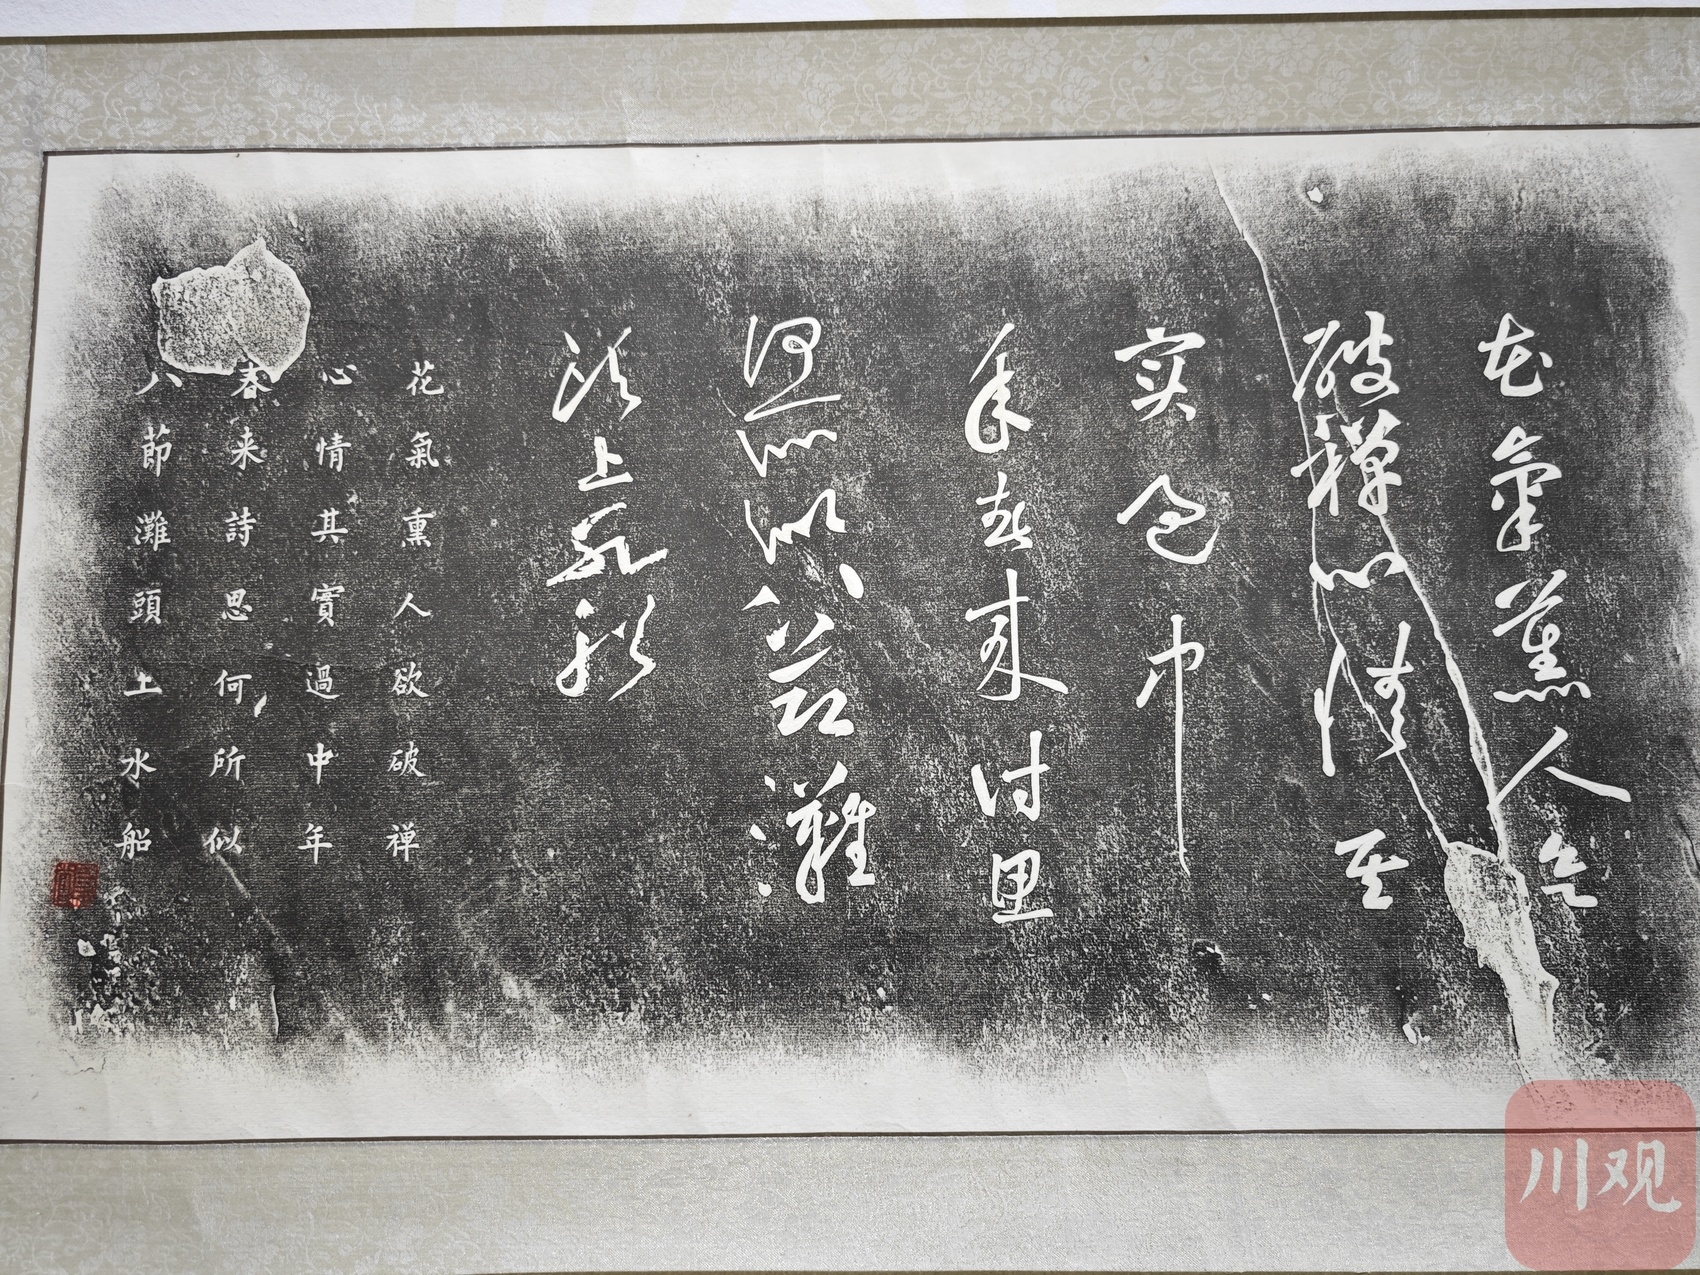 花氣薰人欲
破禪心情其
实過中
年春来詩思
何所似八節灘
頭上水船
花氣熏人欲破禅
心情其實過中年
春来詩思何所似
八節灘頭上水船
川观